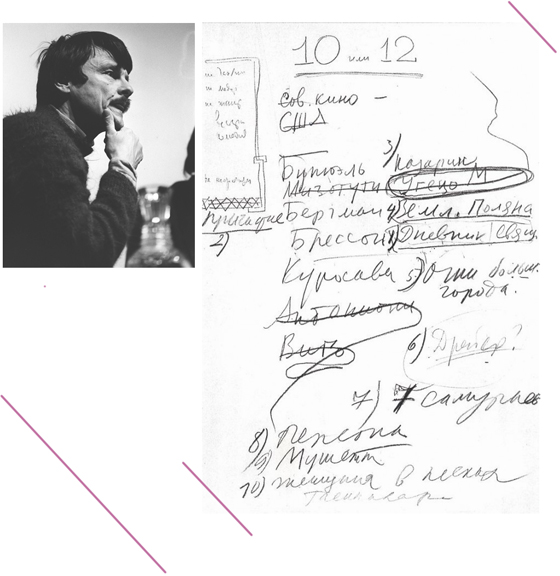 10 или 12
Сов. кино –
США
3)
Бунюэль Назарин
Мизогути Угецу М
Причастие Бергман 4) Земл. Поляна
2)
Брессон 1) Дневник свящ.
Куросава 5) Огни больш.
города.
Антониони
Виго 6) Дрейер?
7) 7 самураев
8) Персона
9) Мушетт
10) Женщина в песках